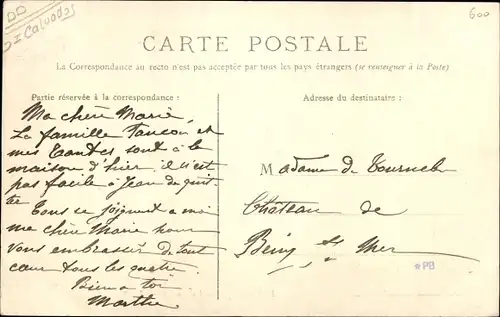 DD
DZ Calvados
600
CARTE POSTALE
La Correspondance au recto n'est pas acceptée par tous les pays étrangers (se renseigner à la Poste)
Partie réservée à la correspondance :
Ma chère Marie,
La famille et
mes tantes sont à la
maison d'hier il n'est
pas facile à Jean de quit
ter
Tous se joignent a moi
ma chère Marie pour
vous embrasser de tout
cœur tous les quatre.
Bien a toi
Marthe
Adresse du destinataire :
Madame de Tournebu
Château de
Bény sur Mer
*PB